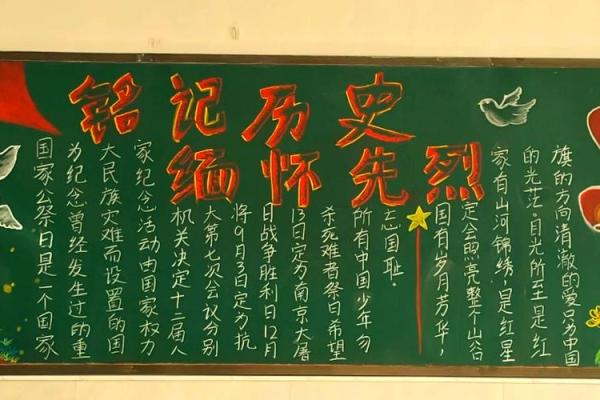 铭记历史
缅怀先烈
国家公祭日是一个国家
为纪念曾经发生过的重
大民族灾难而设置的国
家纪念活动由国家权力
机关决定十二届人
大第七次会议分别
将9月3日定为抗
日战争胜利日12月
13日定为南京大屠
杀死难者祭日希望
所有中国少年勿
志国耻.
国有岁月芳华,
定会照亮整个山谷
家有山河锦绣,是红星
的光茫.目光所至是红
旗的方向清澈的爱只为中国